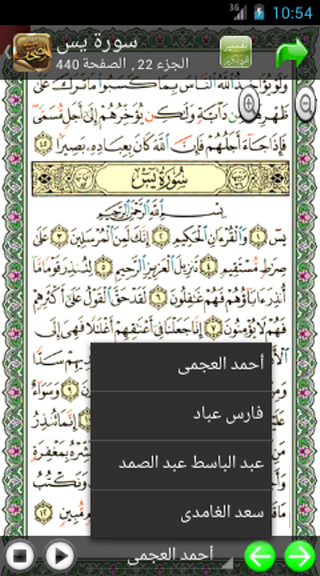 3G 10:54
سورة يس
الجزء 22, الصفحة 440
تفسير
وَلَوْ يُؤَاخِذُ اللَّهُ النَّاسَ بِمَا كَسَبُوا مَا تَرَكَ عَلَىٰ
ظَهْرِهَا مِن دَابَّةٍ وَلَٰكِن يُؤَخِّرُهُمْ إِلَىٰ أَجَلٍ مُّسَمًّى
فَإِذَا جَاءَ أَجَلُهُمْ فَإِنَّ اللَّهَ كَانَ بِعِبَادِهِ بَصِيرًا ٤٥
سُورَةُ يسٓ
بِسْمِ اللَّهِ الرَّحْمَٰنِ الرَّحِيمِ
يسٓ ١ وَالْقُرْآنِ الْحَكِيمِ ٢ إِنَّكَ لَمِنَ الْمُرْسَلِينَ ٣ عَلَىٰ
صِرَاطٍ مُّسْتَقِيمٍ ٤ تَنزِيلَ الْعَزِيزِ الرَّحِيمِ ٥ لِتُنذِرَ قَوْمًا مَّا
أُنذِرَ آبَاؤُهُمْ فَهُمْ غَافِلُونَ ٦ لَقَدْ حَقَّ الْقَوْلُ عَلَىٰ أَكْثَرِهِمْ
فَهُمْ لَا يُؤْمِنُونَ ٧ إِنَّا جَعَلْنَا فِي أَعْنَاقِهِمْ أَغْلَالًا فَهِيَ إِلَى
سَدًّا
٩ وَسَوَاءٌ
١٠ إِنَّمَا تُنذِرُ
بِمَغْفِرَةٍ
وَنَكْتُبُ
مُّبِينٍ ١٢
أحمد العجمى
فارس عباد
عبد الباسط عبد الصمد
سعد الغامدى
أحمد العجمى